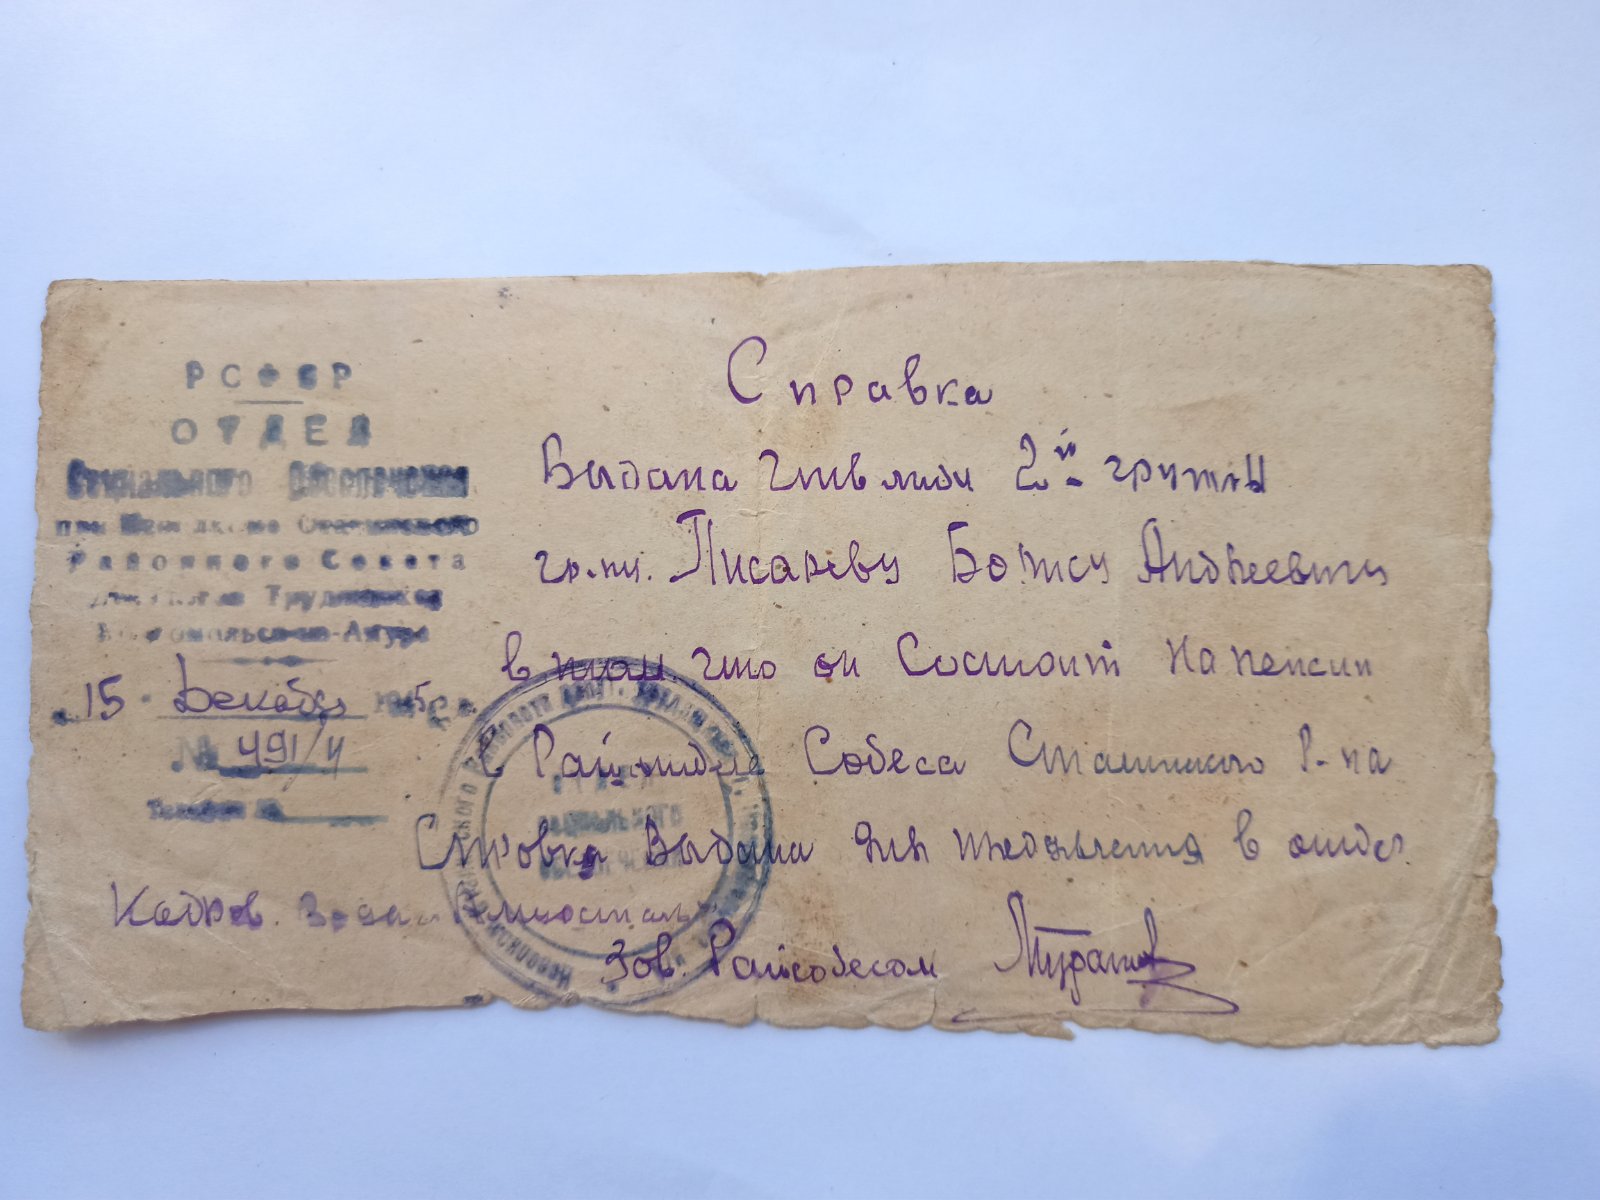 РСФСР
ОТДЕЛ
Социального Обеспечения
при Сталинского
Районного Совета
Трудящихся
Комсомольск-на-Амуре
15 Декабря
№ 491/4
Телефон №
Справка
Выдана 2й группы
гр-ну. Писареву Борису Андреевичу
в том что он Состоит на пенсии
в Райотделе Собеса Сталинского Р-на
Справка Выдана для предъявления в отдел
Кадров.
Зав. Райсобесом
СОЦИАЛЬНОГО